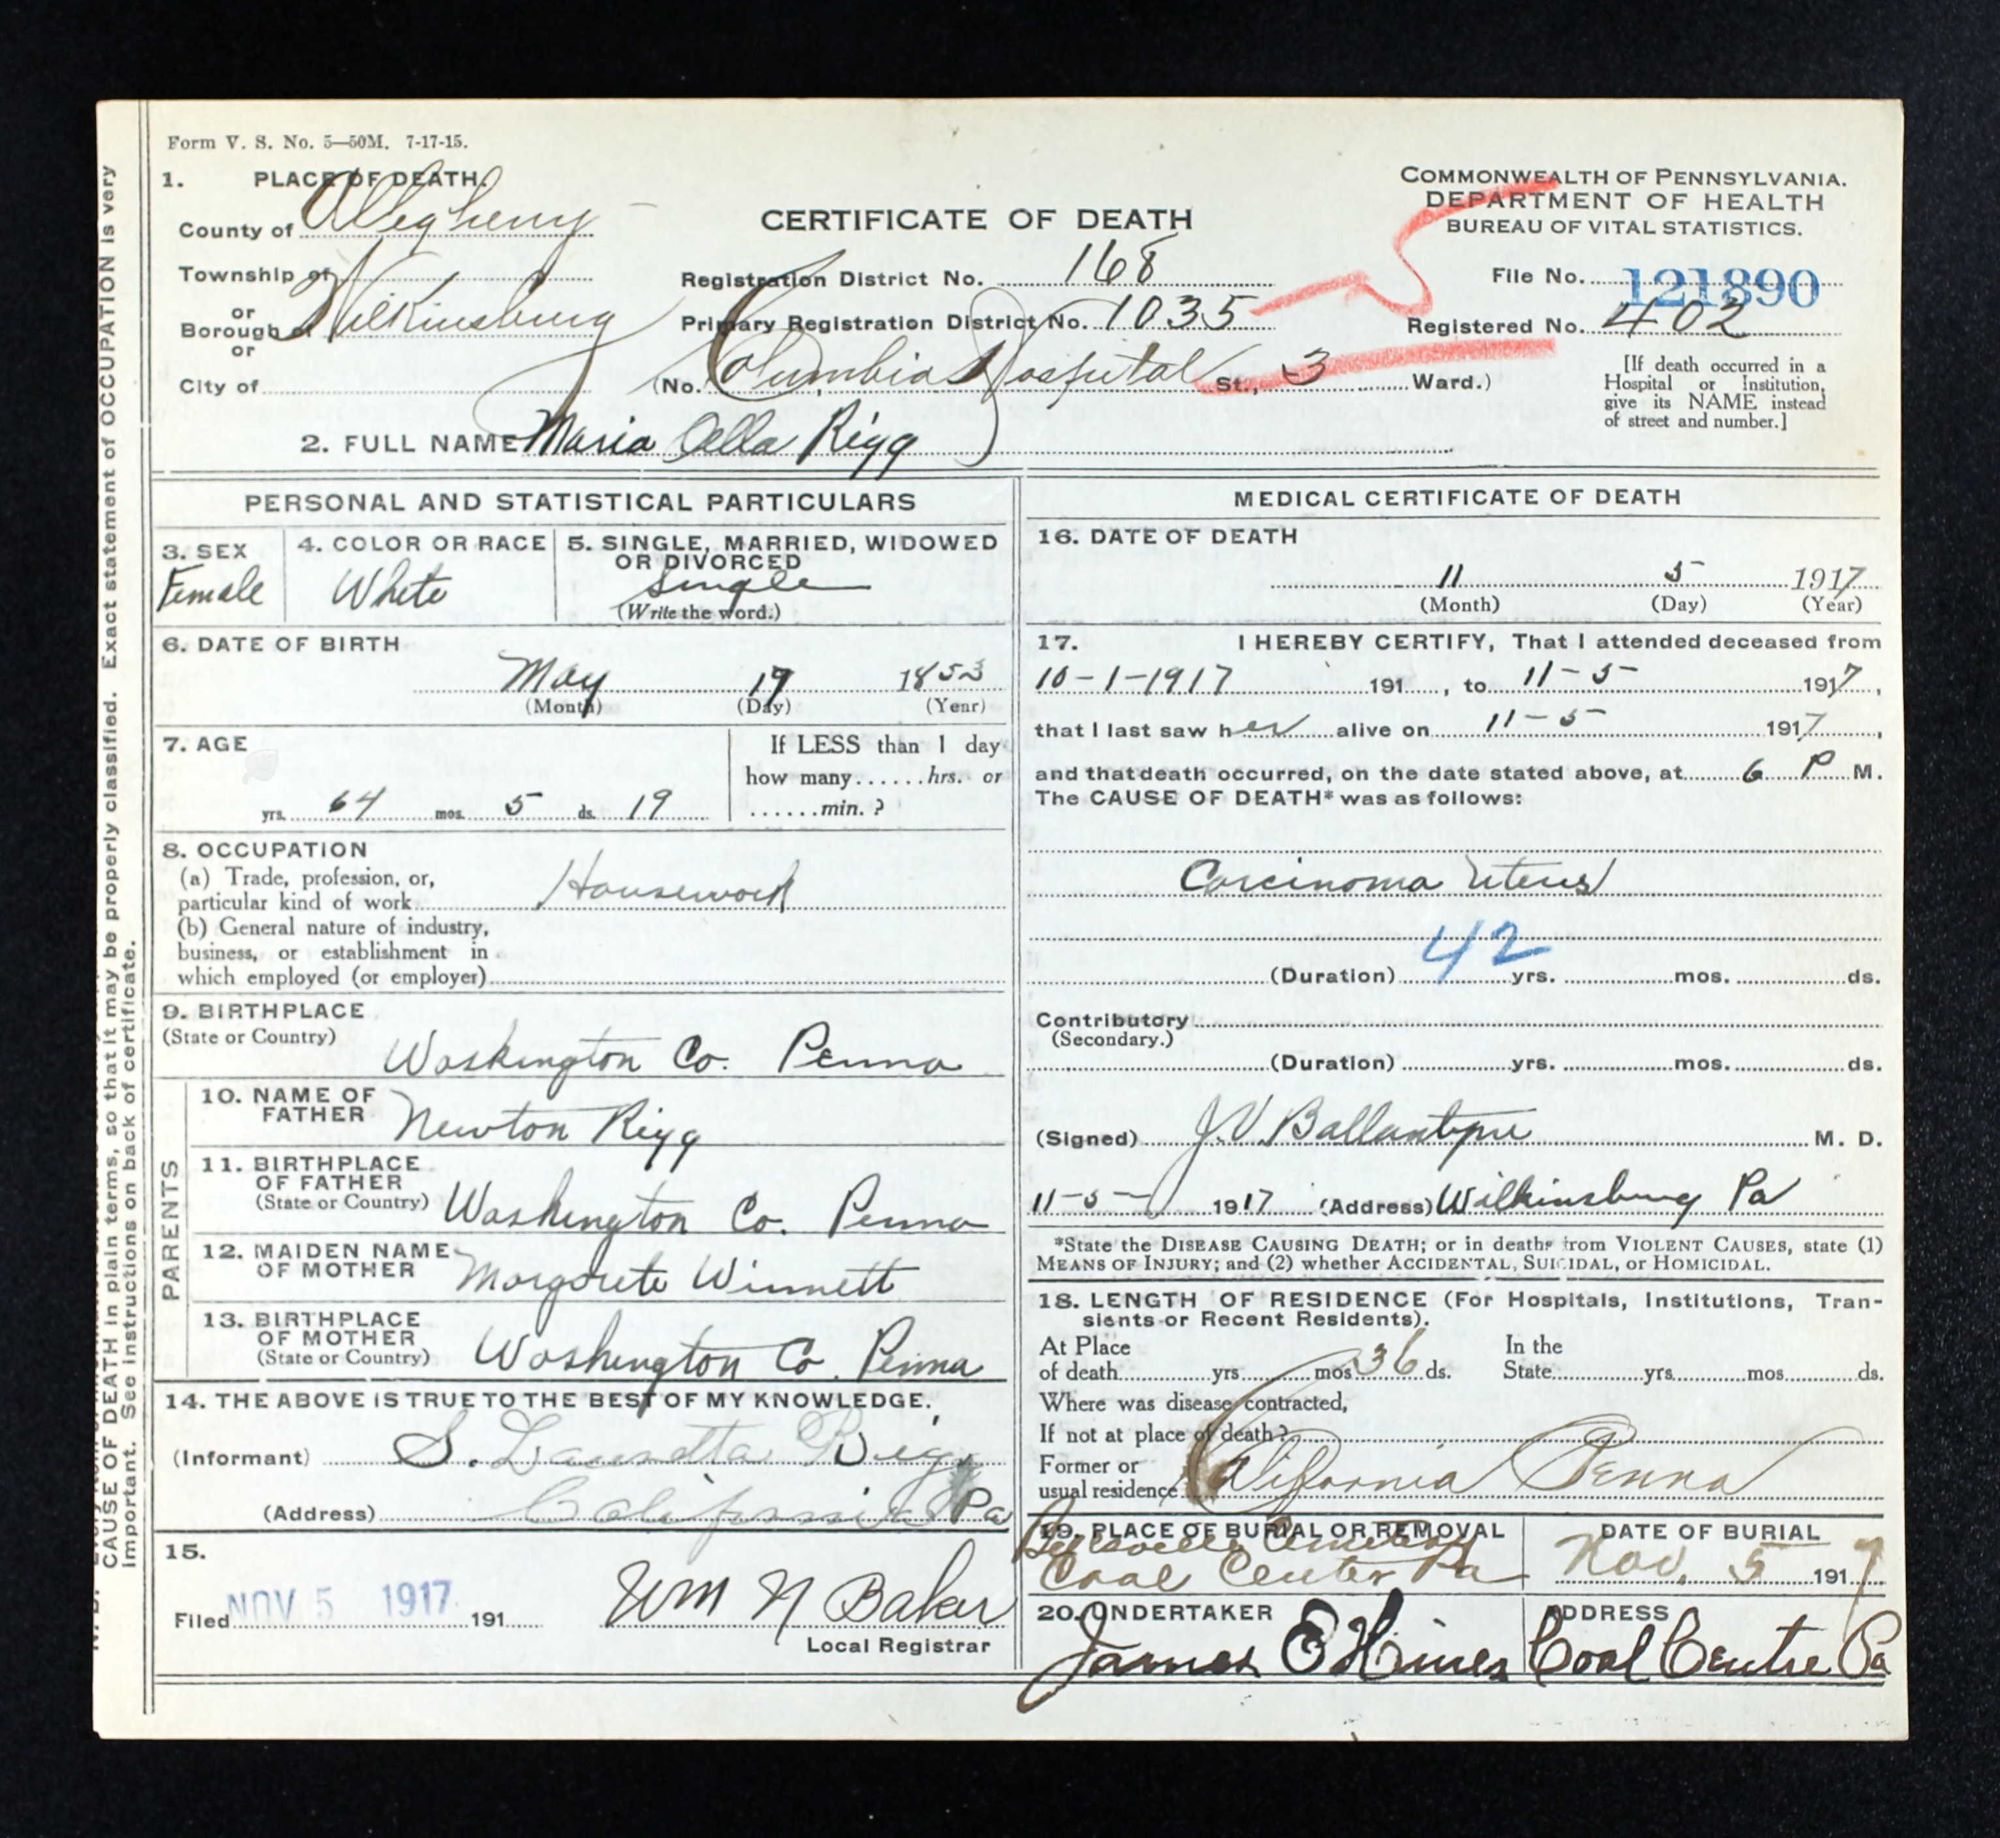 Form V. S. No. 5—50M. 7-17-15.
1. PLACE OF DEATH.
County of Allegheny
Township of
or
Borough of Wilkinsburg
or
City of
CERTIFICATE OF DEATH
Registration District No. 168
Primary Registration District No. 1035
(No. Columbia Hospital St., 3 Ward.)
COMMONWEALTH OF PENNSYLVANIA.
DEPARTMENT OF HEALTH
BUREAU OF VITAL STATISTICS.
File No. 121890
Registered No. 402
[If death occurred in a
Hospital or Institution,
give its NAME instead
of street and number.]
2. FULL NAME Maria Ella Rigg
PERSONAL AND STATISTICAL PARTICULARS
3. SEX
Female
4. COLOR OR RACE
White
5. SINGLE, MARRIED, WIDOWED
OR DIVORCED
Single
(Write the word.)
6. DATE OF BIRTH
May 17 1853
(Month) (Day) (Year)
7. AGE
yrs. 64 mos. 5 ds. 19
If LESS than 1 day
how many......hrs. or
......min.?
8. OCCUPATION
(a) Trade, profession, or,
particular kind of work Housework
(b) General nature of industry,
business, or establishment in
which employed (or employer)
9. BIRTHPLACE
(State or Country)
Washington Co. Penna
PARENTS
10. NAME OF
FATHER Newton Rigg
11. BIRTHPLACE
OF FATHER
(State or Country) Washington Co. Penna
12. MAIDEN NAME
OF MOTHER Margarete Winnett
13. BIRTHPLACE
OF MOTHER
(State or Country) Washington Co. Penna
14. THE ABOVE IS TRUE TO THE BEST OF MY KNOWLEDGE.
(Informant) S. Rigg
(Address) California Pa
15.
Filed NOV 5 1917 191
Wm N Baker
Local Registrar
MEDICAL CERTIFICATE OF DEATH
16. DATE OF DEATH
11 5 1917
(Month) (Day) (Year)
17. I HEREBY CERTIFY, That I attended deceased from
10-1-1917 191 , to 11-5- 1917,
that I last saw her alive on 11-5 1917,
and that death occurred, on the date stated above, at 6 P M.
The CAUSE OF DEATH* was as follows:
Carcinoma Uterus
42
(Duration) yrs. mos. ds.
Contributory
(Secondary.)
(Duration) yrs. mos. ds.
(Signed) J.V. Ballantyne M. D.
11-5- 1917 (Address) Wilkinsburg Pa
*State the DISEASE CAUSING DEATH; or in deaths from VIOLENT CAUSES, state (1)
MEANS OF INJURY; and (2) whether ACCIDENTAL, SUICIDAL, or HOMICIDAL.
18. LENGTH OF RESIDENCE (For Hospitals, Institutions, Tran-
sients or Recent Residents).
At Place
of death yrs. mos 36 ds.
In the
State yrs. mos. ds.
Where was disease contracted,
If not at place of death?
Former or
usual residence California Penna
19. PLACE OF BURIAL OR REMOVAL
Cemetery
Coal Center Pa
DATE OF BURIAL
Nov. 5 1917
20. UNDERTAKER
James E Hines
ADDRESS
Coal Centre Pa
CAUSE OF DEATH in plain terms, so that it may be properly classified. Exact statement of OCCUPATION is very
important. See instructions on back of certificate.